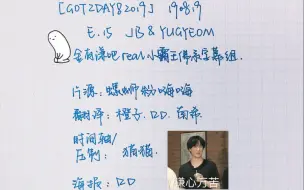 [GOT2DAY82019] 190819
E.15 JB & YUGYEOM
会有谦吧real小霸王佛系字幕组.
片源: 螺蛳粉嗨嗨
翻译: 橙子. DD. 南希
时间轴/
压制: 猫猫.
海报: DD
谦心万苦